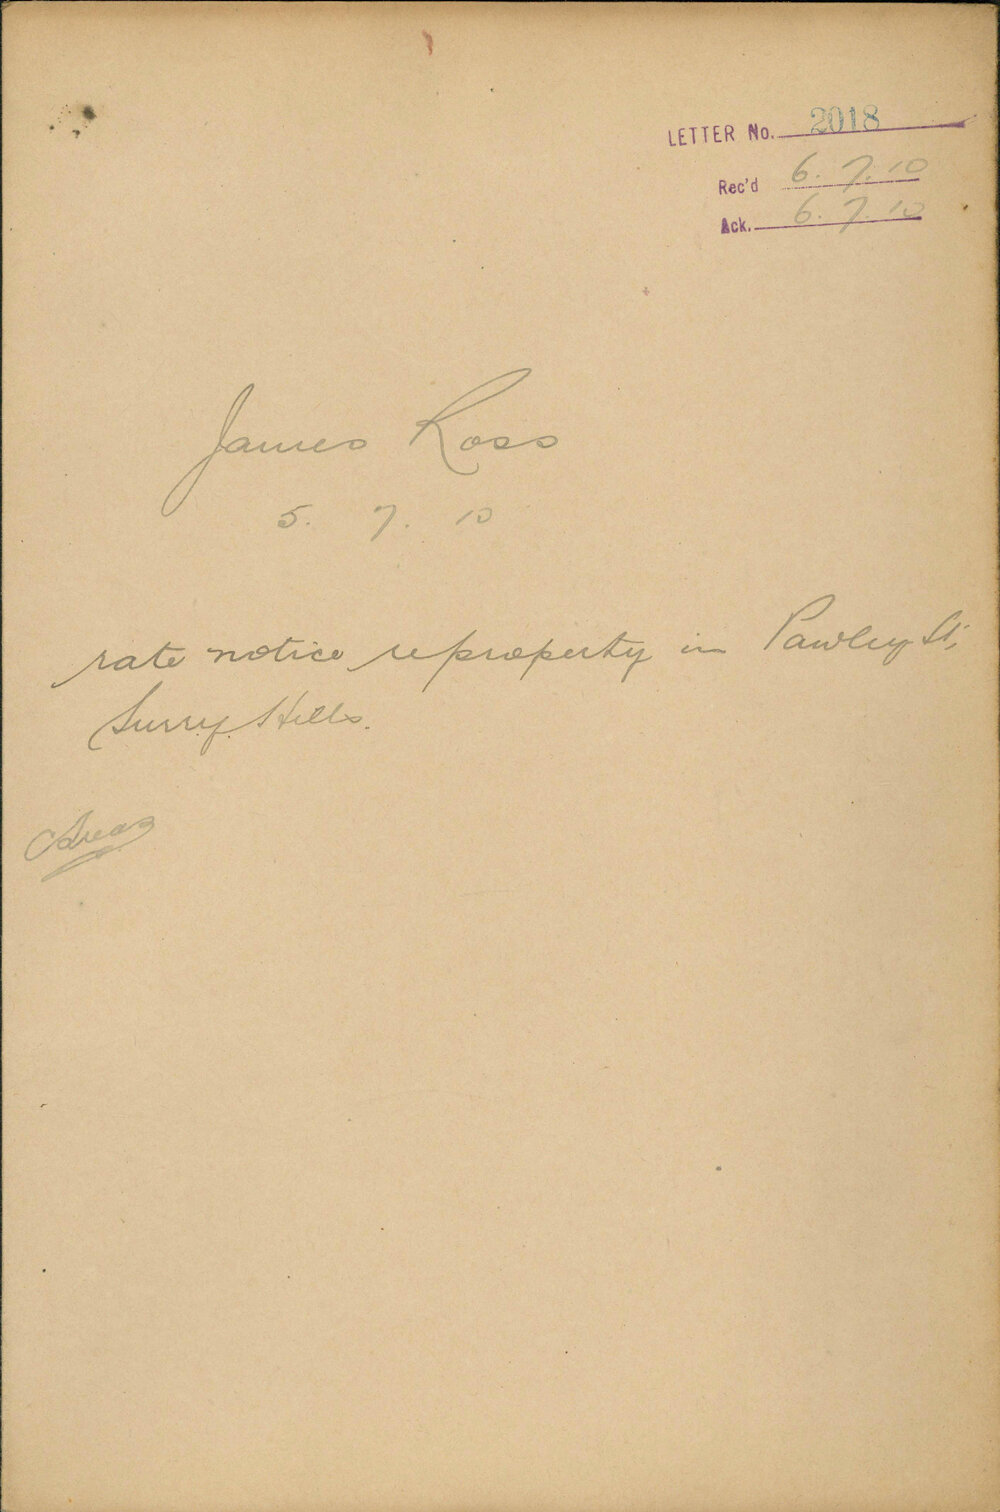 LETTER No. 2018
Rec'd 6.7.10
Ack. 6.7.10
James Ross
5. 7. 10
rate notice re property in Pawley St,
Surry Hills.